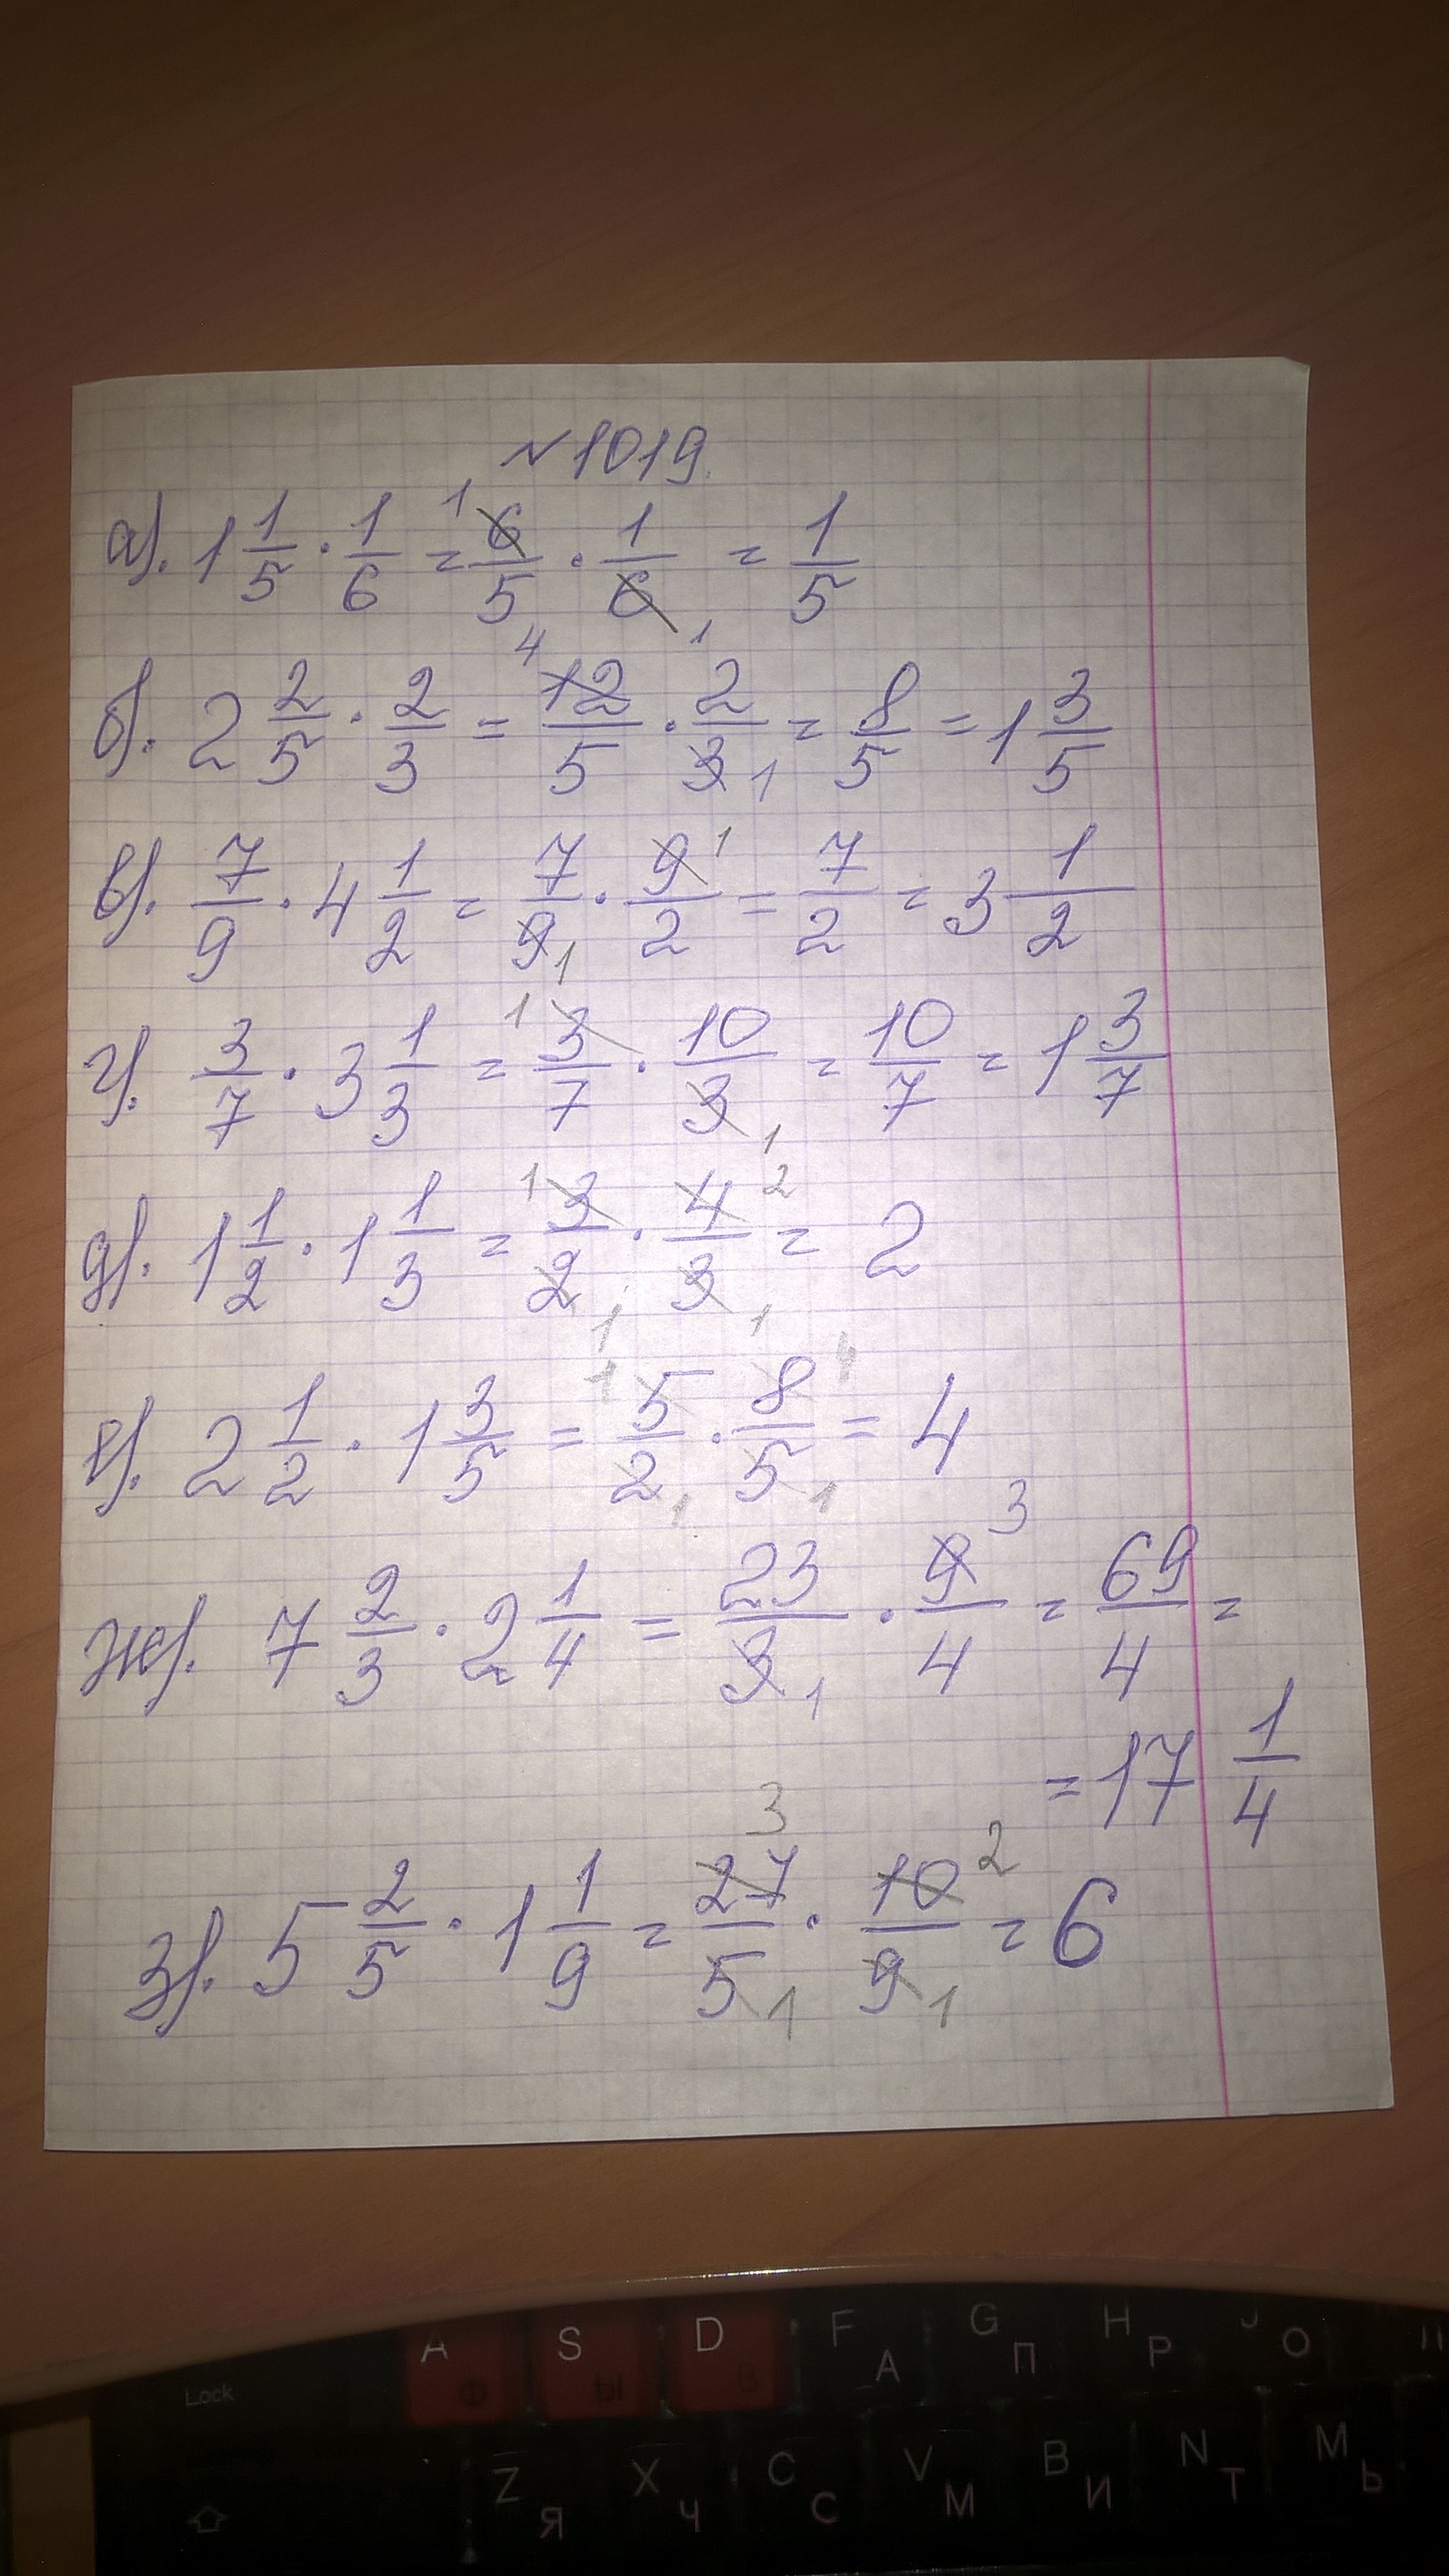 №1019.
а). 1 1/5 · 1/6 = 6/5 · 1/6 = 1/5
б). 2 2/5 · 2/3 = 12/5 · 2/3 = 8/5 = 1 3/5
в). 7/9 · 4 1/2 = 7/9 · 9/2 = 7/2 = 3 1/2
г). 3/7 · 3 1/3 = 3/7 · 10/3 = 10/7 = 1 3/7
д). 1 1/2 · 1 1/3 = 3/2 · 4/3 = 2
е). 2 1/2 · 1 3/5 = 5/2 · 8/5 = 4
ж). 7 2/3 · 2 1/4 = 23/3 · 9/4 = 69/4 =
= 17 1/4
з). 5 2/5 · 1 1/9 = 27/5 · 10/9 = 6
A S D F G H J
Ф Ы В А П Р О
Lock
Z X C V B N M
Я Ч С М И Т Ь